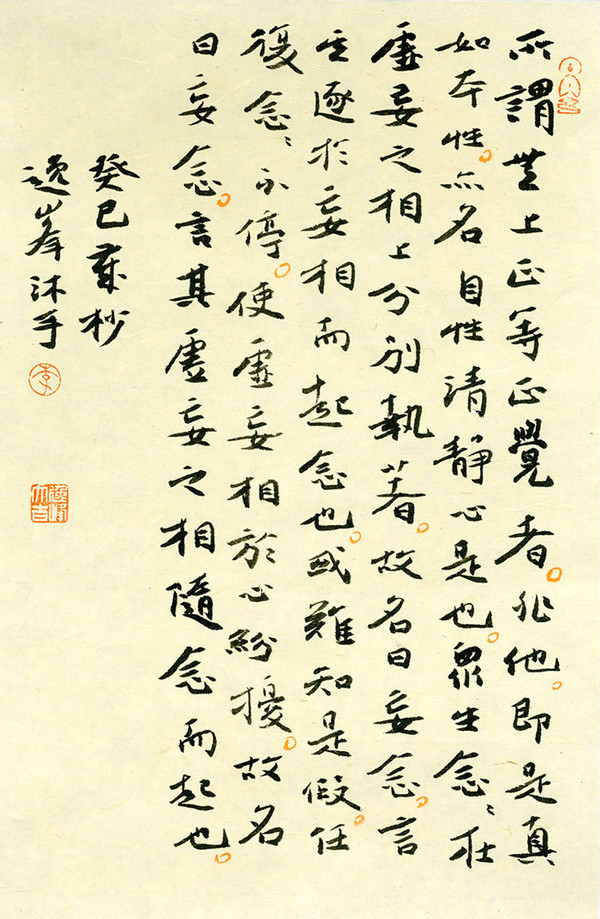 所謂无上正等正覺者。非他。即是真
如本性。亦名自性清靜心是也。眾生念〻在
虛妄之相上分別執著。故名曰妄念。言
其逐於妄相而起念也。或難知是假。任
復念〻不停。使虛妄相於心紛擾。故名
曰妄念。言其虛妄之相隨念而起也。
癸巳歲杪
逸峯沐手